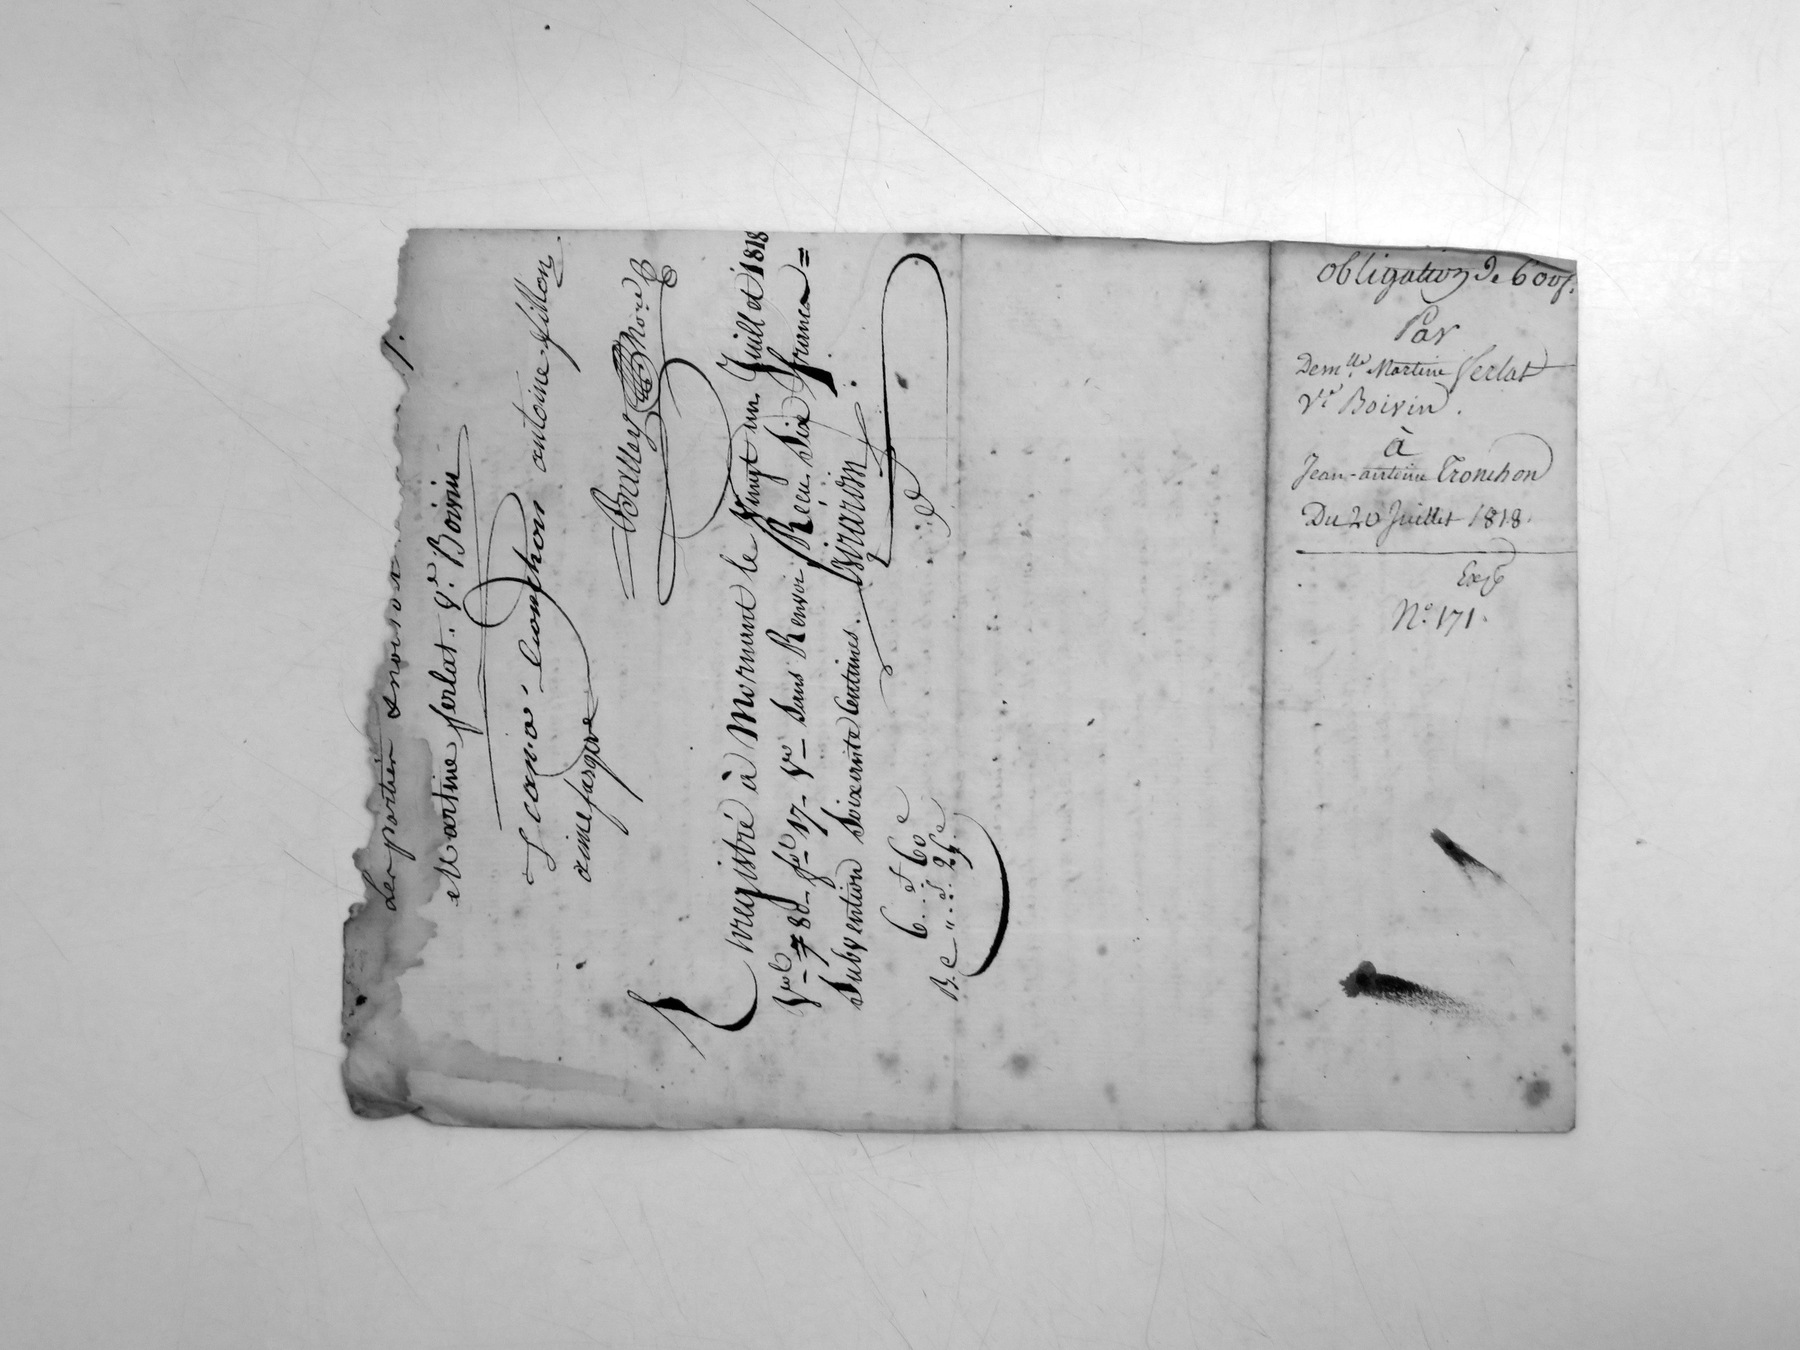 Les parties & nous not
Martine ferlat. Ve. Boivin
tronchon antoine fillon
aimé fargere
Boulley Nore
Enregistré à Mornant le Vingt un Juillet 1818
Vol 78 fo 17 Vo Sans Renvoi Reçu Six francs =
Subvention Soixante Centimes. Girardin
6 .. f 60 c
B. C ,, .. d. 25 c
obligation de 600f.
Par
Demlle. Martine ferlat
Ve Boivin.
à
Jean-antoine Tronchon
Du 20 Juillet 1818.
No. 171.